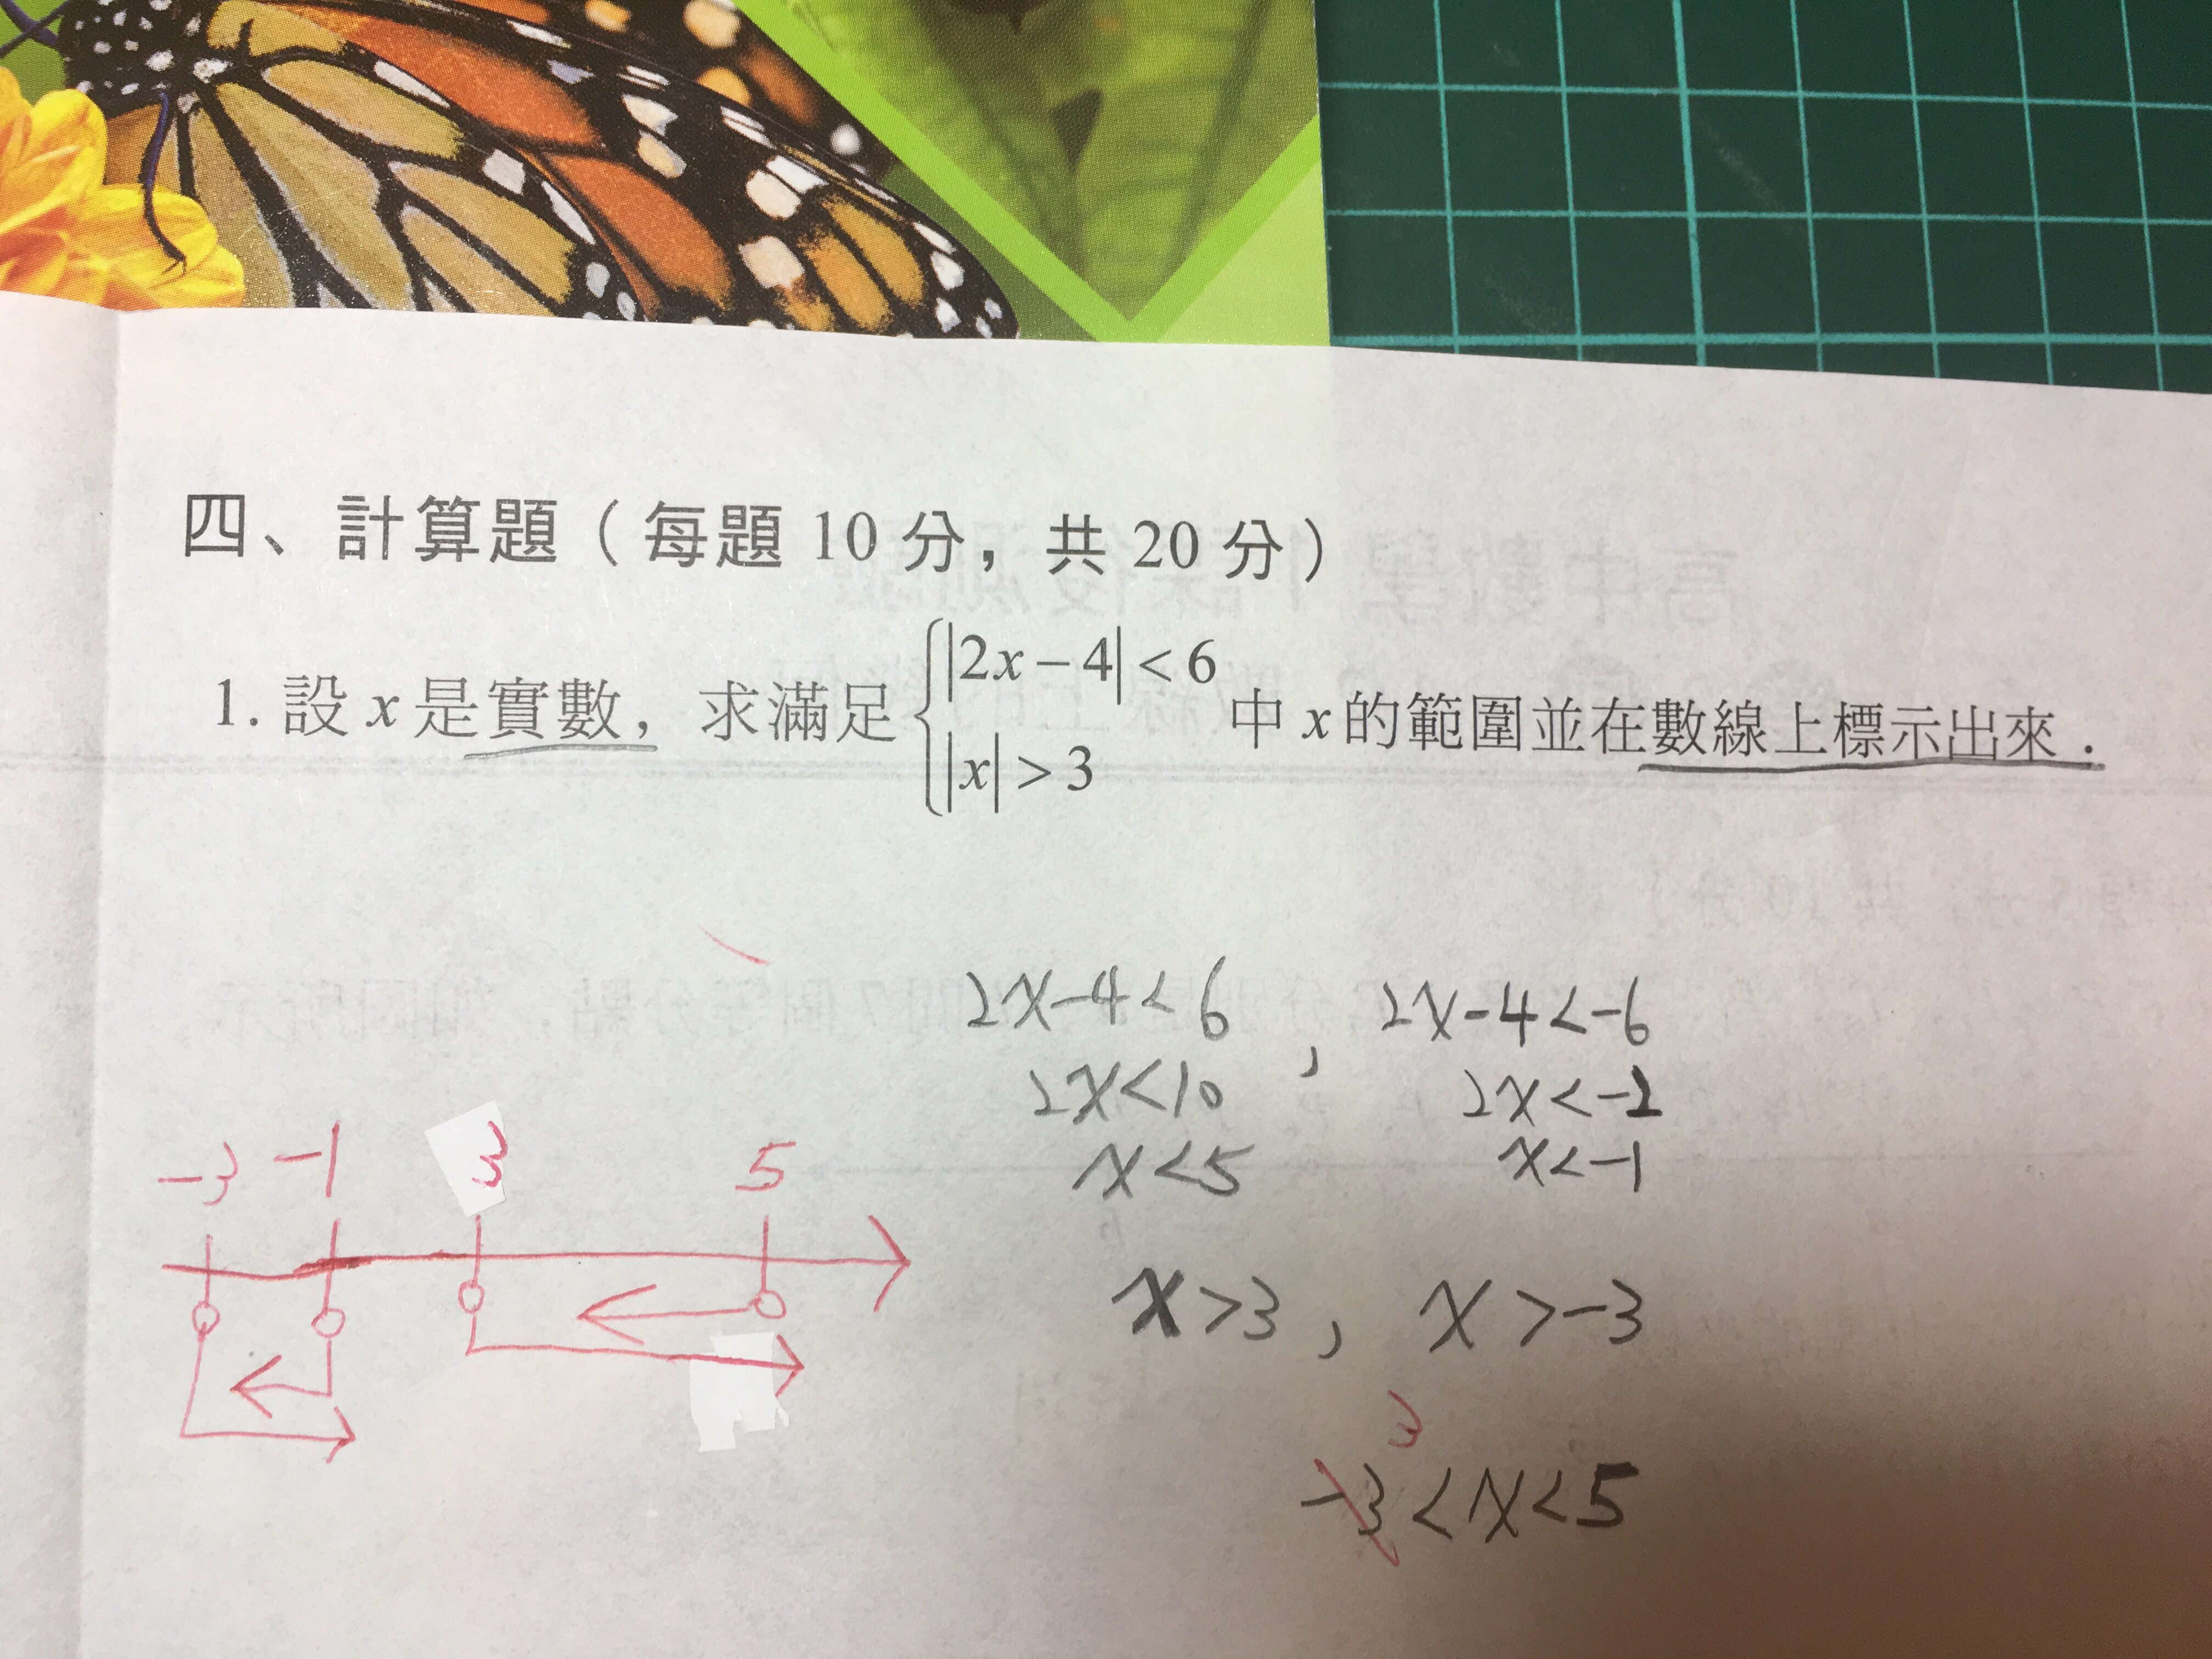 四、計算題（每題 10 分，共 20 分）
1. 設 x 是實數，求滿足 { |2x－4| < 6 中 x 的範圍並在數線上標示出來．
|x| > 3
2x-4<6 , 2x-4<-6
2x<10 2x<-2
x<5 x<-1
-3 -1 3 5
x>3, x>-3
3
-3<x<5